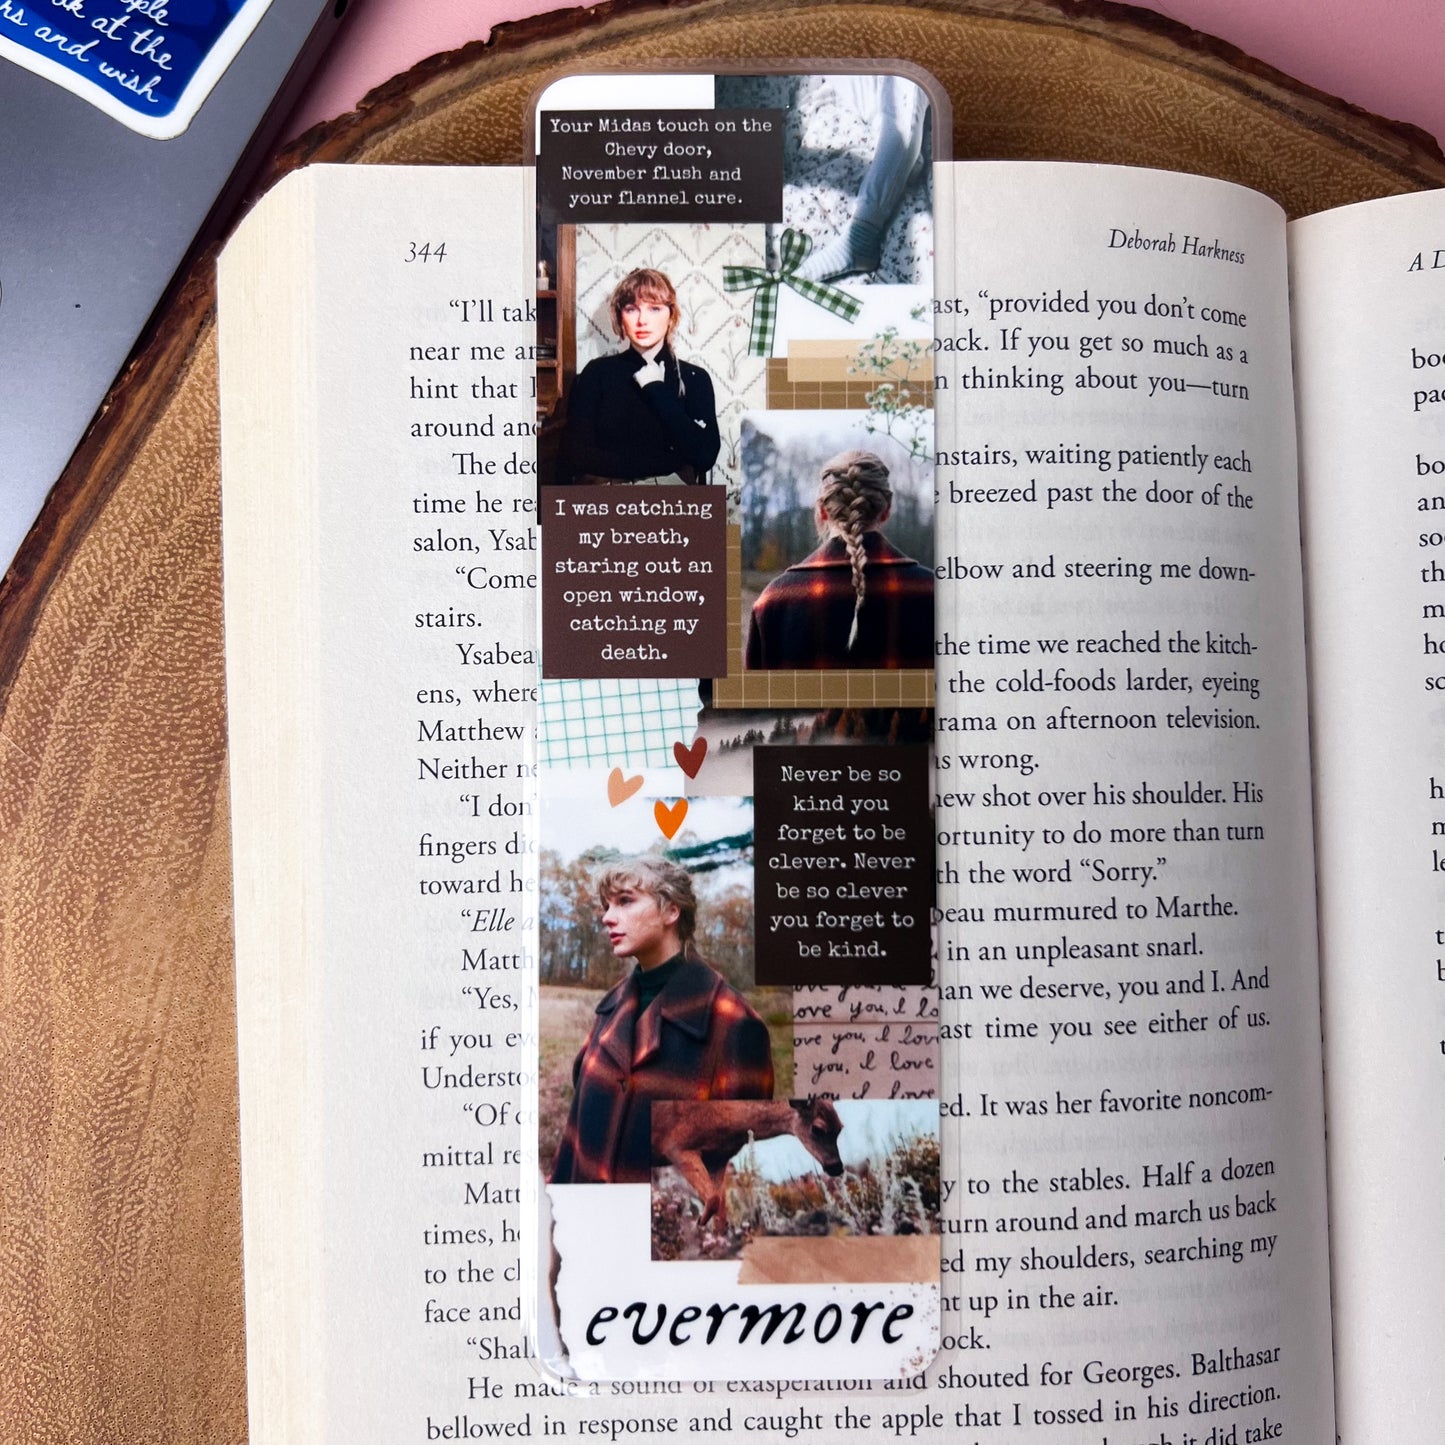 ople
ok at the
rs and wish
Your Midas touch on the
Chevy door,
November flush and
your flannel cure.
I was catching
my breath,
staring out an
open window,
catching my
death.
Never be so
kind you
forget to be
clever. Never
be so clever
you forget to
be kind.
love you, I
love you, I lo
ove you, I lov
you, I love
you I love
evermore
344
Deborah Harkness
"I'll tak
near me an
hint that I
around and
The dec
time he re
salon, Ysab
"Come
stairs.
Ysabea
ens, where
Matthew
Neither ne
"I don'
fingers di
toward he
"Elle a
Matth
"Yes,
if you ev
Understo
"Of c
mittal re
Matt
times, h
to the cl
face and
"Shal
ast, "provided you don't come
back. If you get so much as a
n thinking about you—turn
nstairs, waiting patiently each
breezed past the door of the
elbow and steering me down-
the time we reached the kitch-
the cold-foods larder, eyeing
rama on afternoon television.
is wrong.
new shot over his shoulder. His
ortunity to do more than turn
th the word "Sorry."
beau murmured to Marthe.
in an unpleasant snarl.
han we deserve, you and I. And
ast time you see either of us.
ed. It was her favorite noncom-
y to the stables. Half a dozen
turn around and march us back
ed my shoulders, searching my
ht up in the air.
ock.
He made a sound of exasperation and shouted for Georges. Balthasar
bellowed in response and caught the apple that I tossed in his direction.
it did take
A D
boo
pac
bo
an
so
th
m
ho
sc
h
m
le
t
b
t